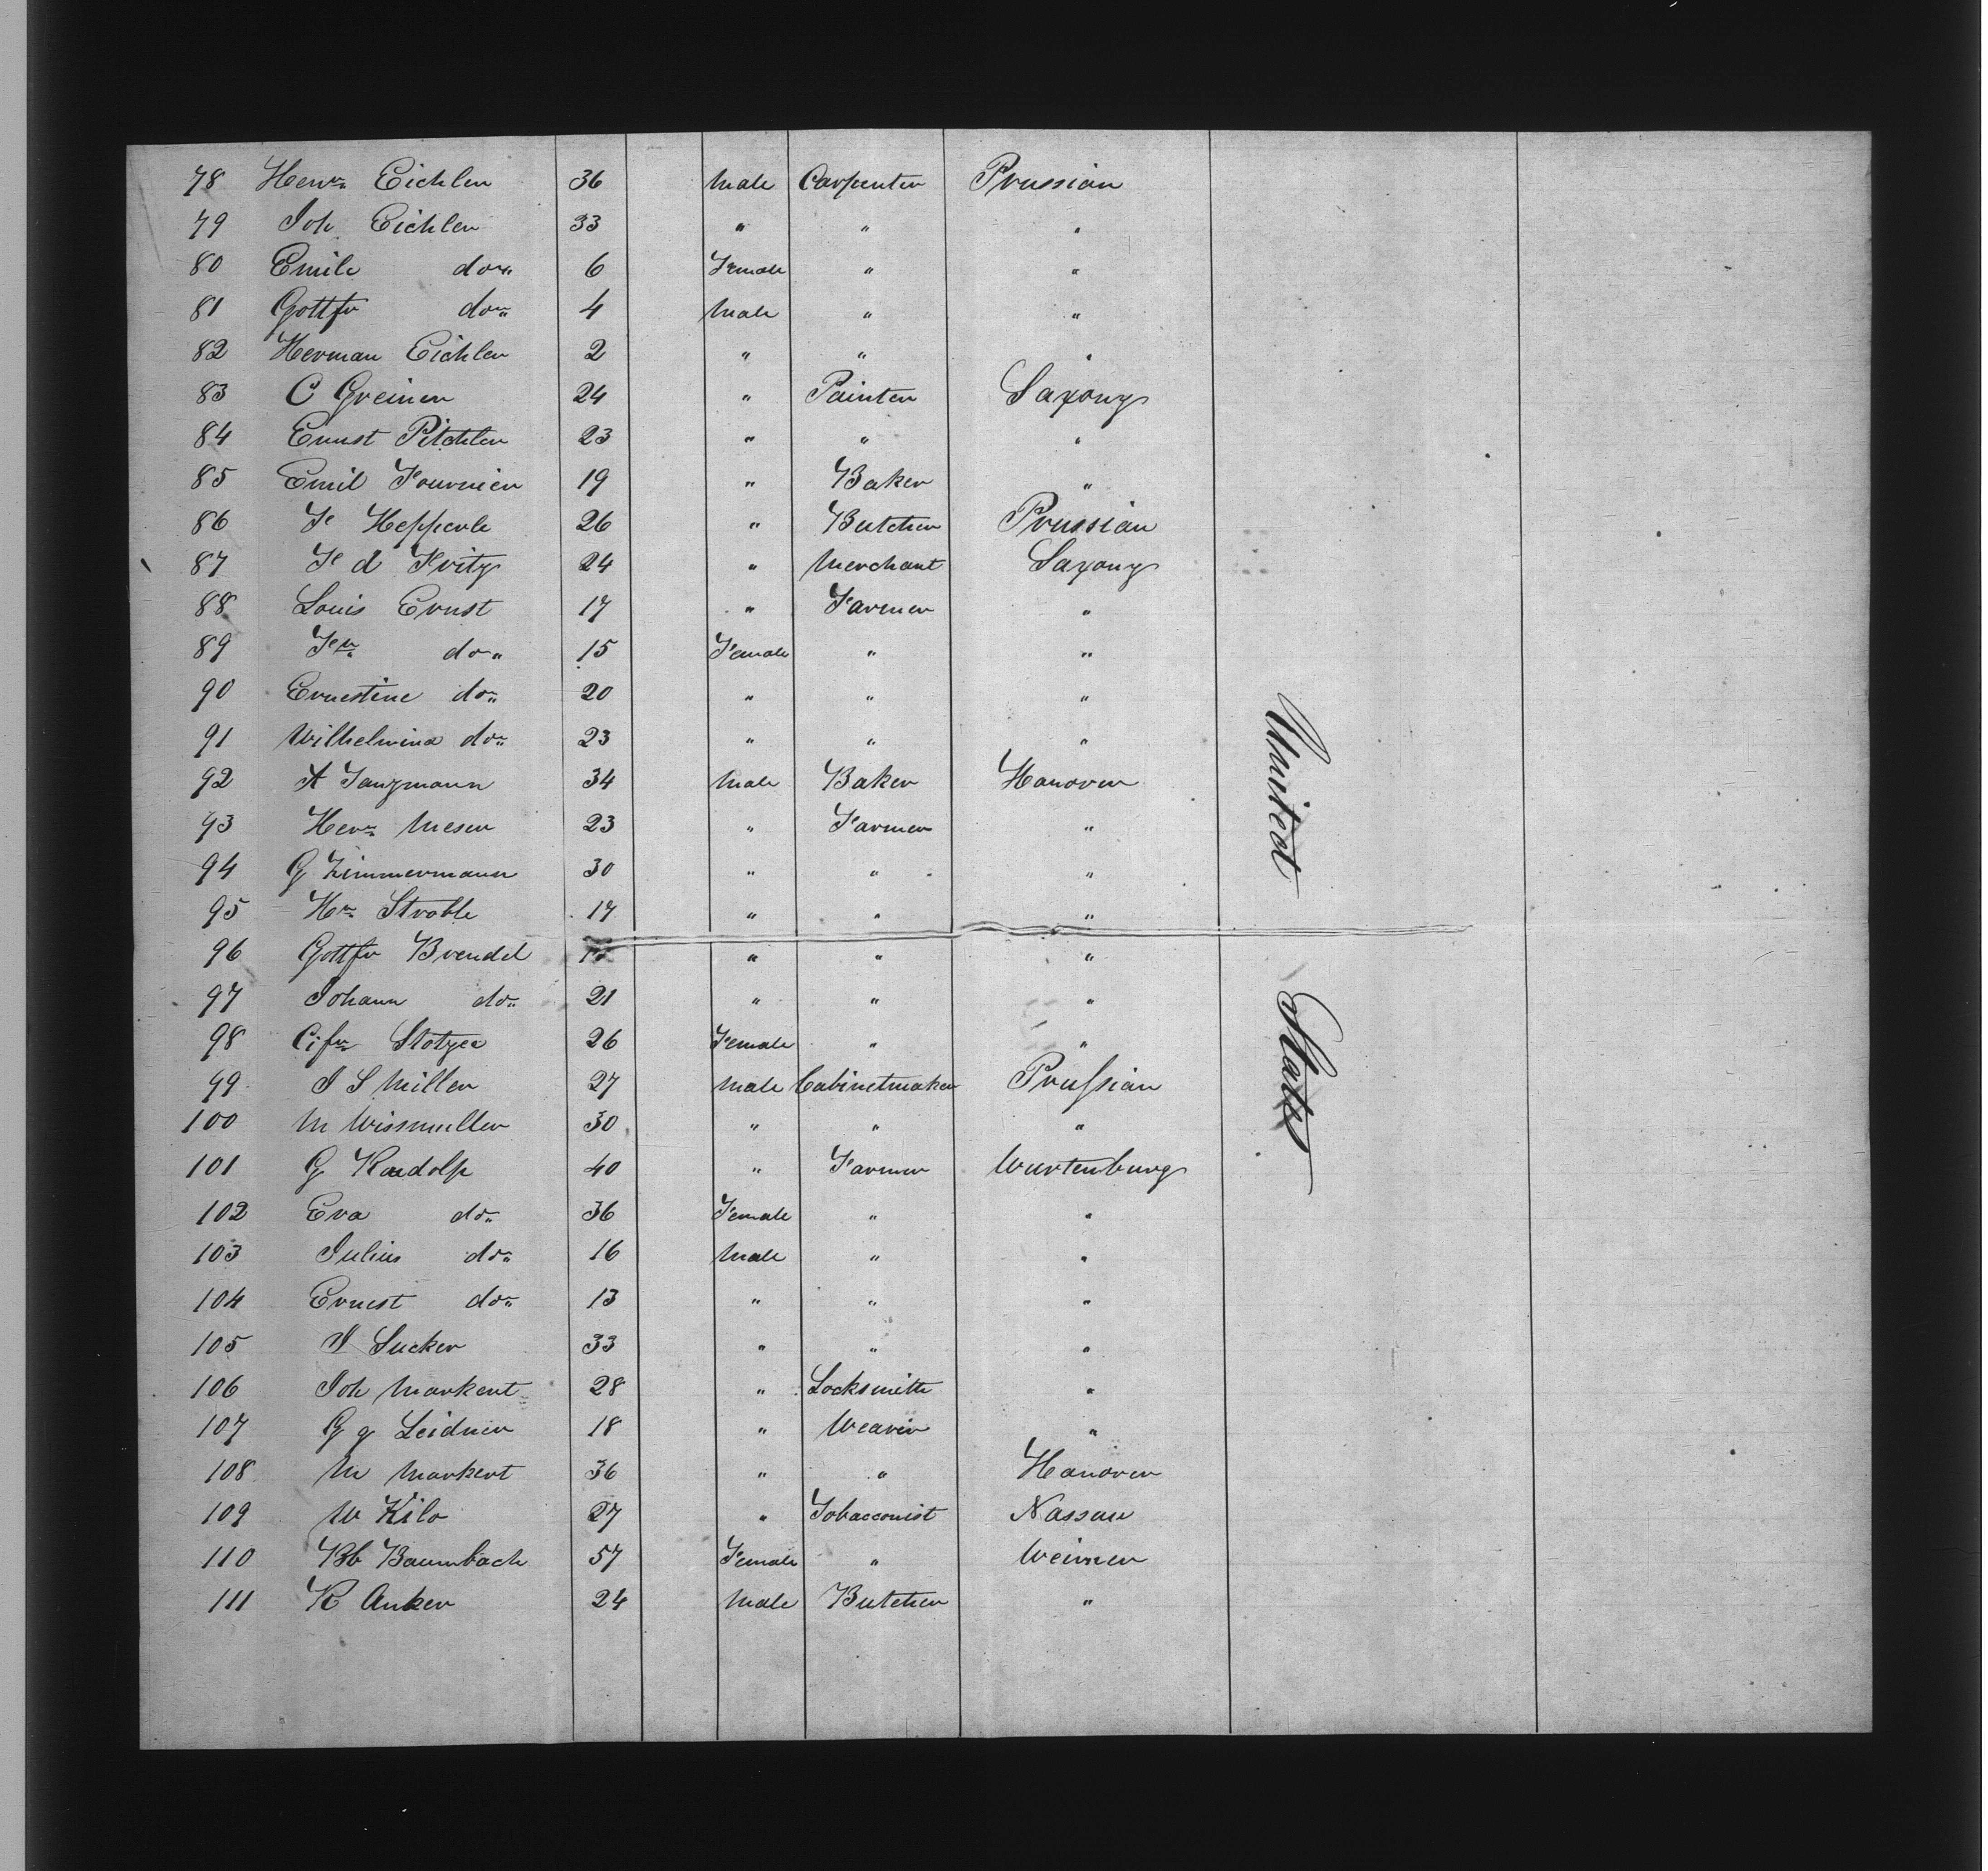 78 Herm Eichler 36 Male Carpenter Prussian
79 Joh Eichler 33 " " "
80 Emile do 6 Female " "
81 Gottfr do 4 Male " "
82 Herman Eichler 2 " " "
83 C Greiner 24 " Painter Saxony
84 Ernst Pitchler 23 " " "
85 Emil Fournier 19 " Baker "
86 F Hepperle 26 " Butcher Prussian
87 F d Fritz 24 " Merchant Saxony
88 Louis Ernst 17 " Farmer "
89 Fr do 15 Female " "
90 Ernestine do 20 " " "
91 Wilhelmina do 23 " " "
92 A Tanzmann 34 Male Baker Hanover
93 Herm Meser 23 " Farmer "
94 G Zimmermann 30 " " "
95 Hr Stroble 17 " " "
96 Gottfr Brendel " " "
97 Johann do 21 " " "
98 26 Female " "
99 J S Miller 27 Male Cabinetmaker Prussian
100 M Wissmuller 30 " " "
101 G Raudolf 40 " Farmer Wurtenburg
102 Eva do 36 Female " "
103 Julius do 16 Male " "
104 Ernest do 13 " " "
105 J Sucker 33 " " "
106 Joh Markert 28 " Locksmith "
107 G g Leidner 18 " Weaver "
108 M Markert 36 " " Hanover
109 W Kilo 27 " Tobacconist Nassau
110 Bb Baumbach 57 Female " Weimer
111 R Anker 24 Male Butcher "
United States